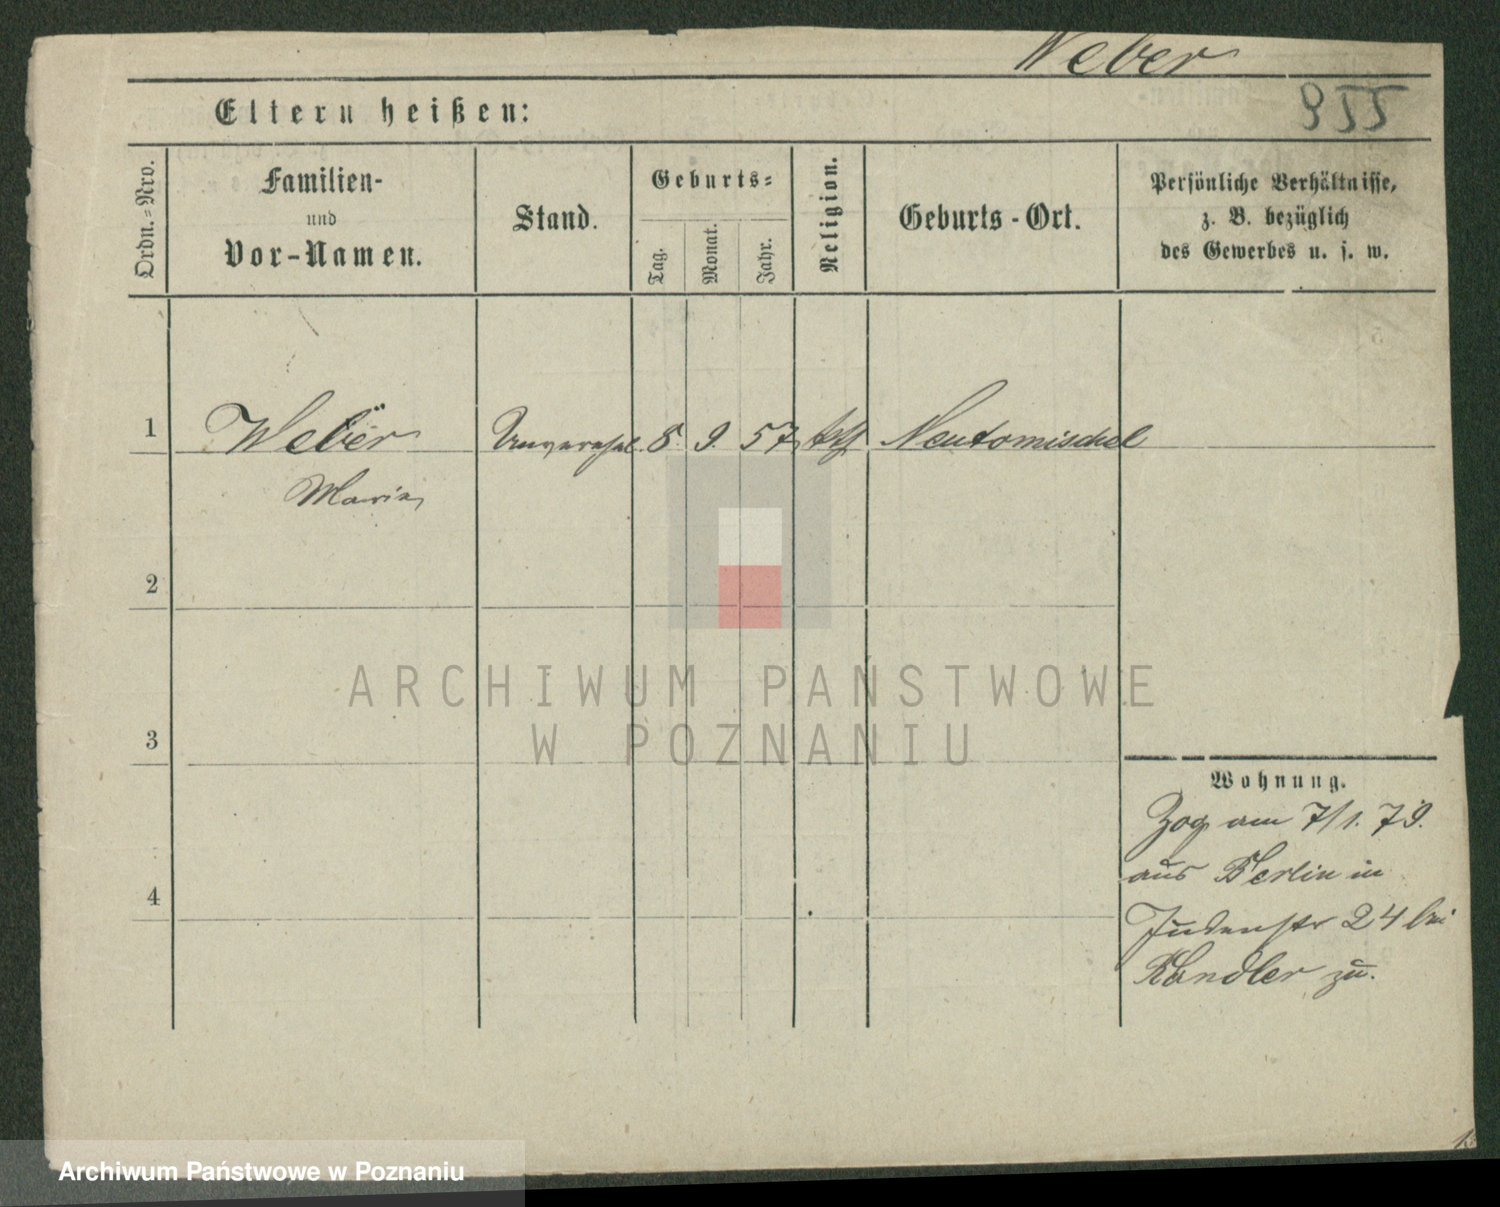 Weber
955
Eltern heißen:
Ordn.-Nro.
Familien-
und
Vor-Namen.
Stand.
Geburts-
Tag.
Monat.
Jahr.
Religion.
Geburts-Ort.
Persönliche Verhältnisse,
z. B. bezüglich
des Gewerbes u. s. w.
1 Weber 8. 9. 57 kth Neutomischel
Maria
2
3
4
Wohnung.
Zog am 7/1. 79.
aus Berlin in
Judenstr 24 bei
Kandler zu.
ARCHIWUM PAŃSTWOWE
W POZNANIU
Archiwum Państwowe w Poznaniu